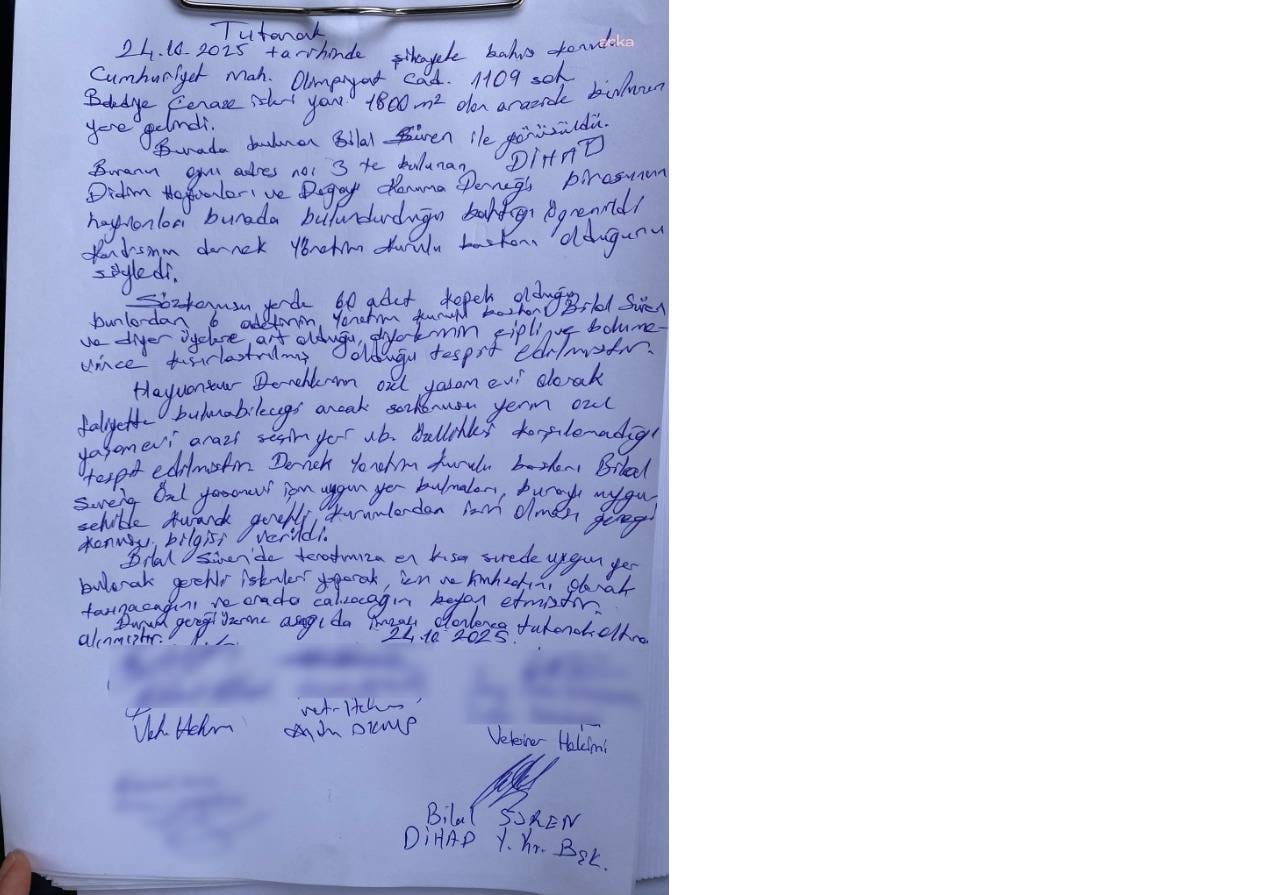 Tutanak
anka
24.10.2025 tarihinde şikayete bahis konu
Cumhuriyet Mah. Olimpiyat Cad. 1109 sok
Belediye Cenaze işleri yanı 1800 m² olan arazide bulunan
yere gelindi.
Burada bulunan Bilal Süren ile görüşüldü.
Buranın aynı adres no: 3 te bulunan DİHAD
Didim Hayvanları ve Doğayı Koruma Derneği binasının
hayvanları burada bulundurduğu baktığı öğrenildi
Kendisinin dernek Yönetim Kurulu başkanı olduğunu
söyledi.
Sözkonusu yerde 60 adet köpek olduğu
bunlardan 6 adetinin Yönetim Kurulu başkanı Bilal Süren
ve diğer üyelere ait olduğu, diğerlerinin çipli ve
kısırlaştırılmış olduğu tespit edilmiştir.
Hayvansever Derneklerinin özel yaşam evi olarak
faliyette bulunabileceği ancak sözkonusu yerin özel
yaşamevi arazi seçim yer vb. özellikleri karşılamadığı
tespit edilmiştir. Dernek Yönetim Kurulu başkanı Bilal
Süren'e Özel yaşamevi için uygun yer bulmaları, burayı uygun
şekilde kurarak gerekli kurumlardan izin alması gereği
konusu bilgisi verildi.
Bilal Süren'de tarafımıza en kısa sürede uygun yer
bularak gerekli işlemleri yaparak, izin ve ruhsatını alarak
taşınacağını ve orada çalışacağını beyan etmiştir.
Durum gereği üzerine aşağıda imzası olanlarca tutanak altına
alınmıştır. 24.10.2025.
Vet. Hekim
Vet. Hekim
Aydın DKMP
Veteriner Hekimi
Bilal SÜREN
DİHAD Y. Kr. Bşk.